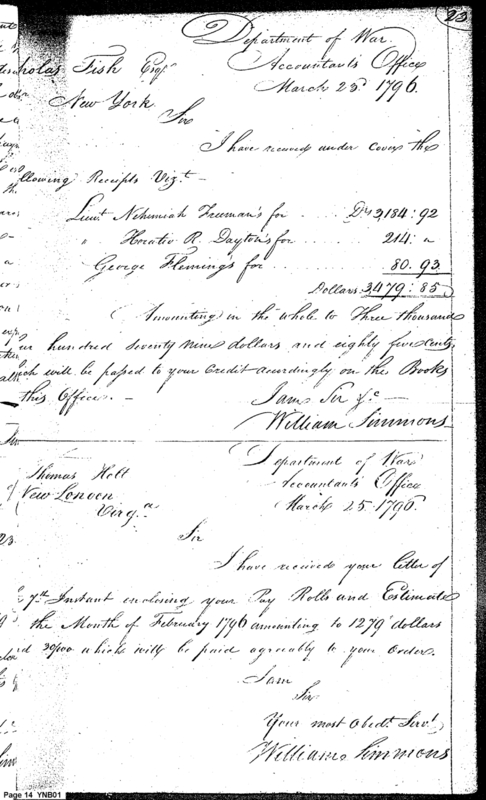 23
Department of War
Accountants Office
March 23d 1796
holas Fish Esqr
New York
Sir
I have received under cover the
llowing Receipts Vizt —
Lieut. Nehemiah Freeman's for . . . . Drs 3184: 92
" Horatio R. Dayton's for . . . . . 214: "
George Fleming's for . . . . . . . 80. 93
Dollars 3479: 85
Amounting in the whole to Three thousand
ur hundred seventy nine dollars and eighty five Cents,
ich will be passed to your Credit accordingly on the Books
this Office. —
I am Sir &c
William Simmons
Department of War
Accountants Office
March 25. 1796.
Thomas Holt
New London
Virga
Sir
I have received your letter of
7th Instant enclosing your Pay Rolls and Estimate
the Month of February 1796 amounting to 1279 dollars
d 30/100 which will be paid agreeably to your order.
I am
Sir
Your most Obedt. Servt
William Simmons
Page 14 YNB01